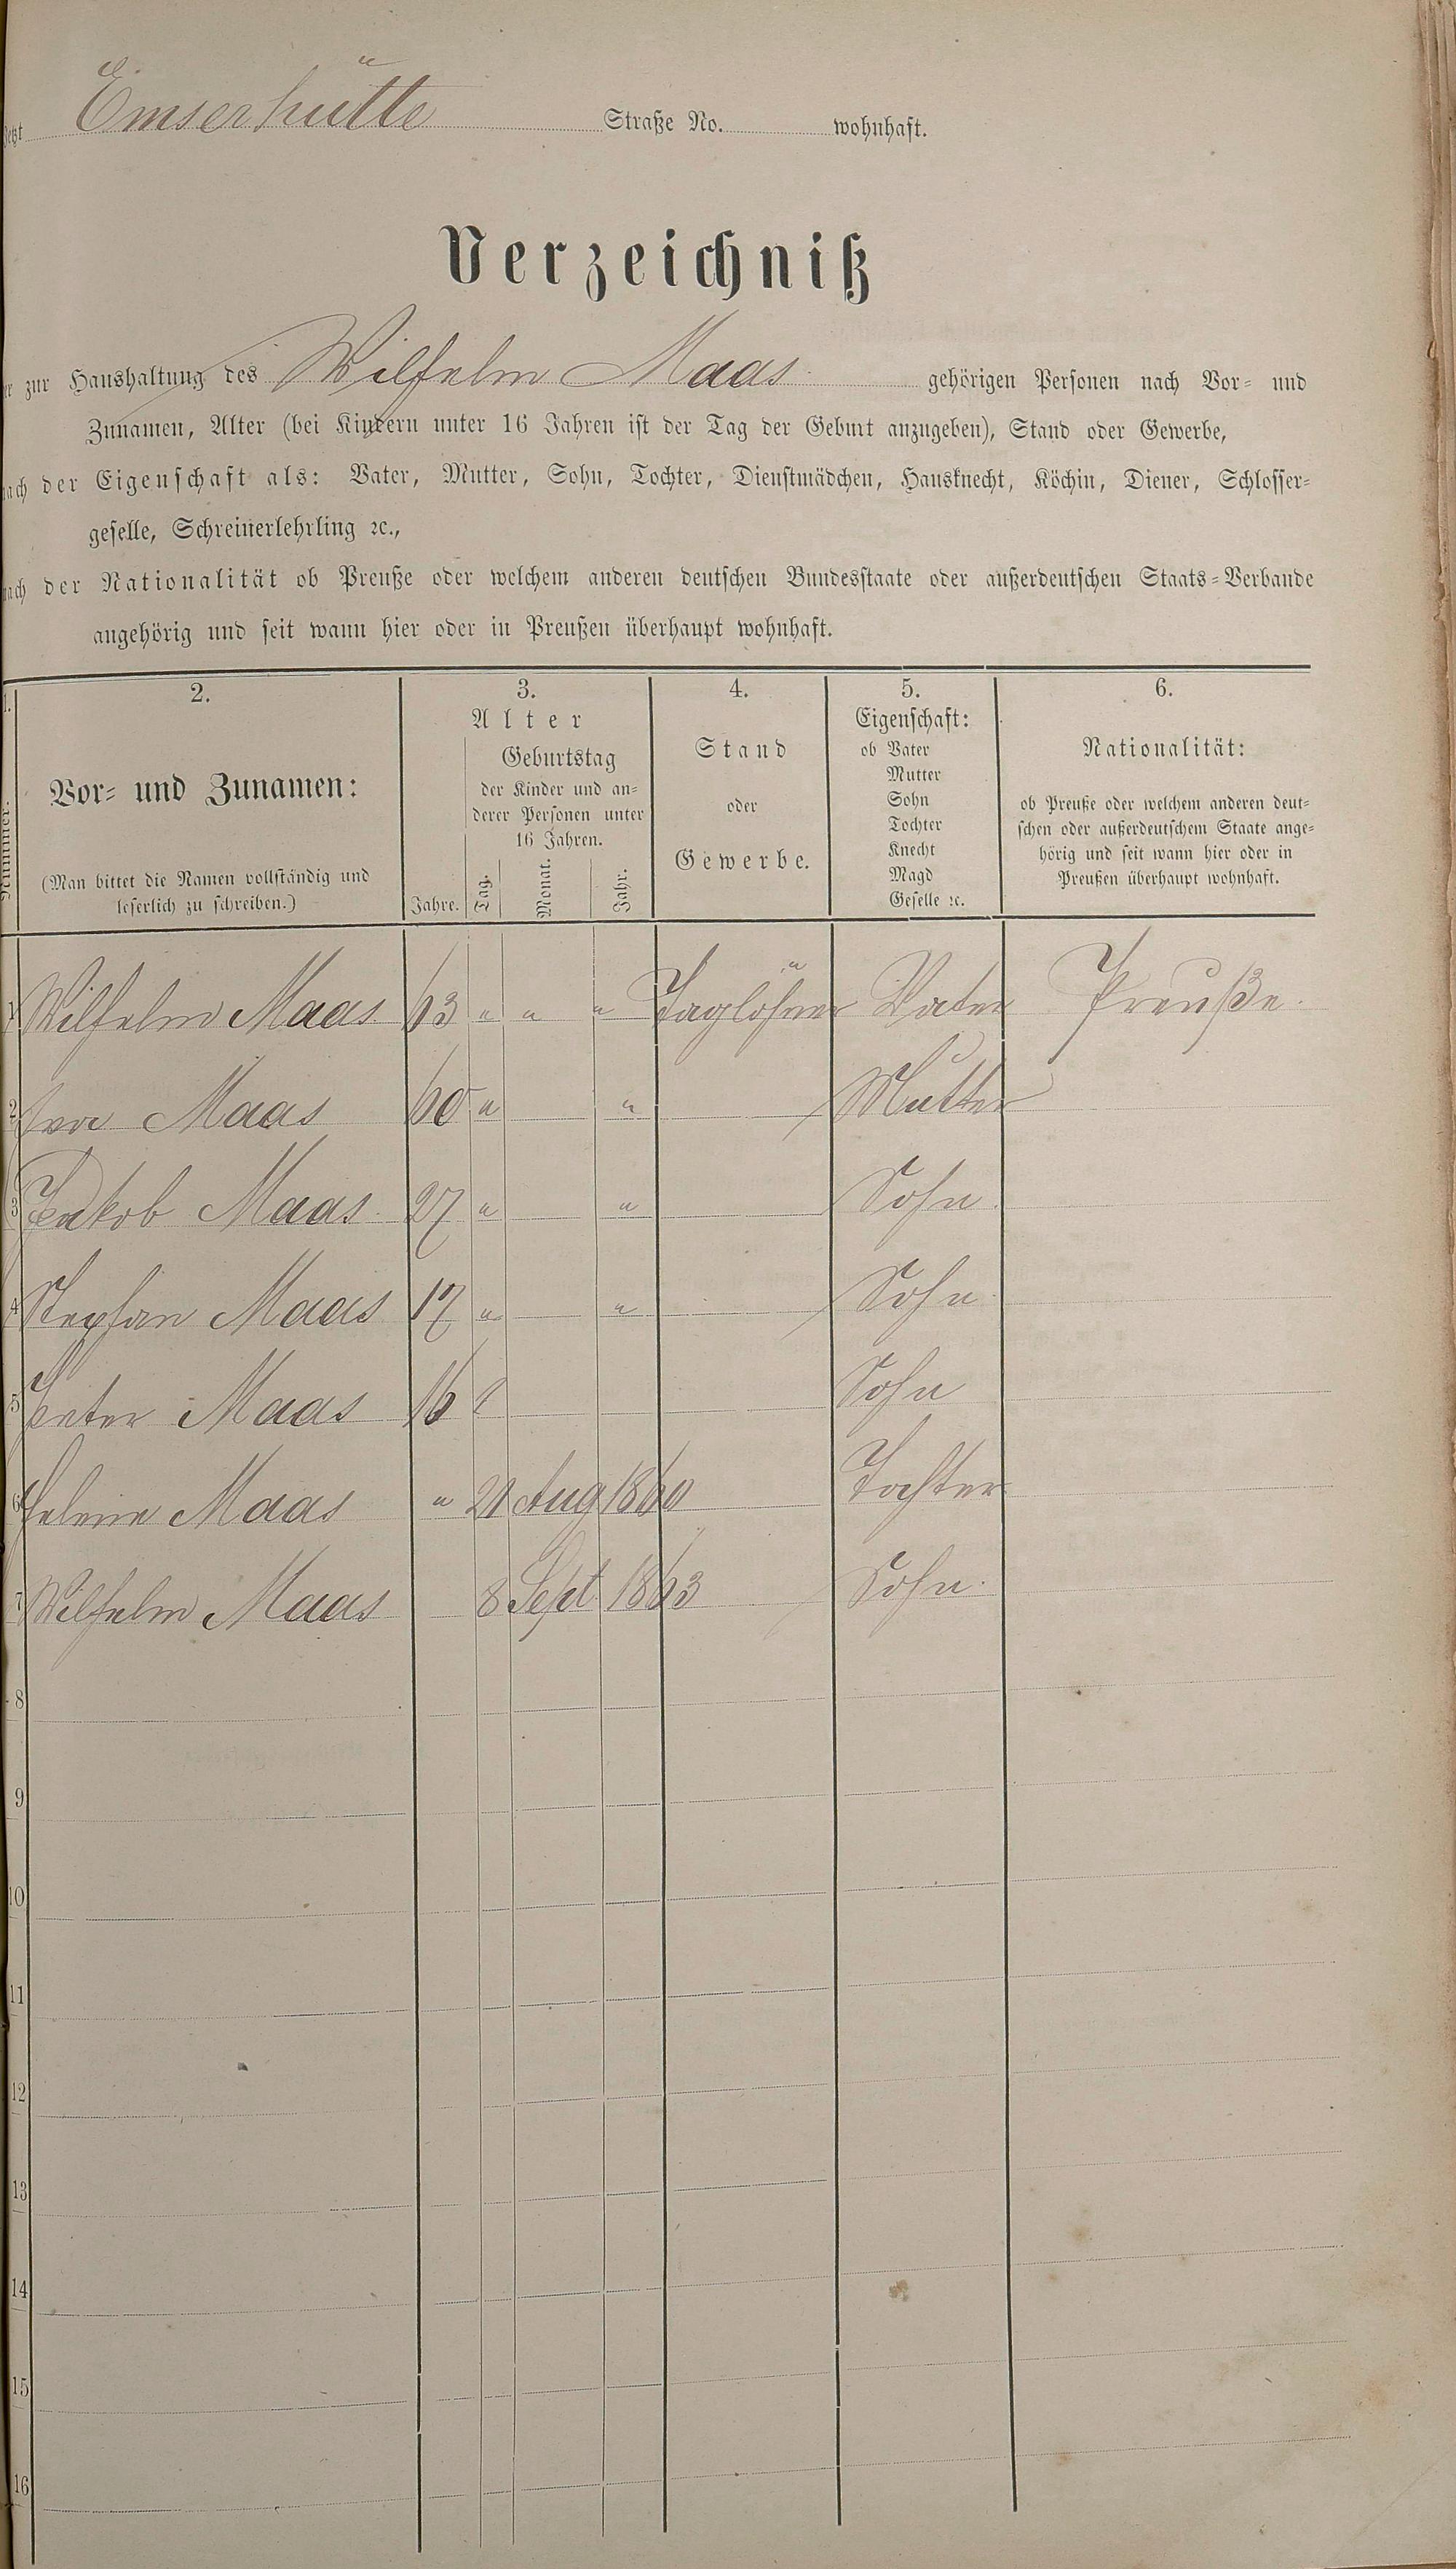 Jetzt Emserhütte Straße No. wohnhaft.
Verzeichniß
der zur Haushaltung des Wilhelm Maas gehörigen Personen nach Vor- und
Zunamen, Alter (bei Kindern unter 16 Jahren ist der Tag der Geburt anzugeben), Stand oder Gewerbe,
nach der Eigenschaft als: Vater, Mutter, Sohn, Tochter, Dienstmädchen, Hausknecht, Köchin, Diener, Schlosser-
geselle, Schreinerlehrling ꝛc.,
nach der Nationalität ob Preuße oder welchem anderen deutschen Bundesstaate oder außerdeutschen Staats-Verbande
angehörig und seit wann hier oder in Preußen überhaupt wohnhaft.
1. 2. 3. 4. 5. 6.
Nummer.
Vor- und Zunamen:
(Man bittet die Namen vollständig und
leserlich zu schreiben.)
Alter
Jahre.
Geburtstag
der Kinder und an-
derer Personen unter
16 Jahren.
Tag. Monat. Jahr.
Stand
oder
Gewerbe.
Eigenschaft:
ob Vater
Mutter
Sohn
Tochter
Knecht
Magd
Geselle ꝛc.
Nationalität:
ob Preuße oder welchem anderen deut-
schen oder außerdeutschem Staate ange-
hörig und seit wann hier oder in
Preußen überhaupt wohnhaft.
1 Wilhelm Maas 63 " " " Taglöhner Vater Preuße.
2 Maas 60 " " Mutter
3 Jakob Maas 27 " " Sohn
4 Stephan Maas 17 " " Sohn
5 Peter Maas 16 Sohn
6 Helena Maas " 21 Aug 1860 Tochter
7 Wilhelm Maas 8 Sept. 1863 Sohn.
8
9
10
11
12
13
14
15
16